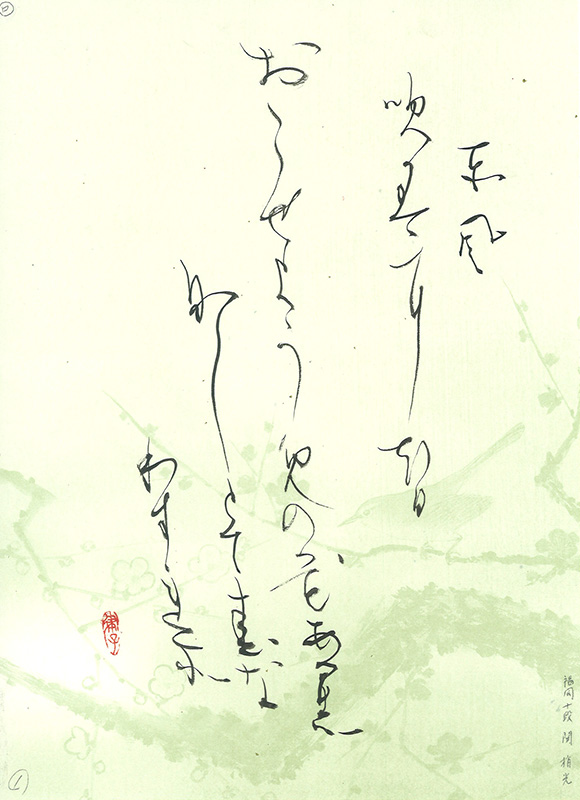 東風
吹かばにほひ
おこせようめの花あるし
なしとて春な
わすれそ
福岡十段 関
①